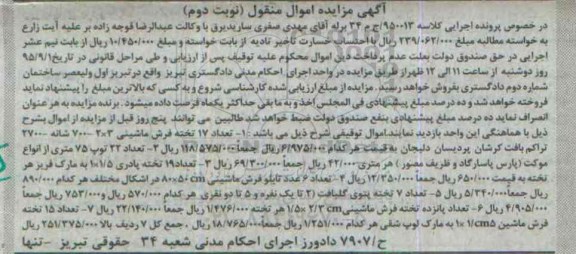 آگهی مزایده اموال منقول (نوبت دوم)
در خصوص پرونده اجرایی کلاسه ۹۵۰۰۱۳/ج م ۳۴ برله آقای مهدی صفری ساریدیرق با وکالت عبدالرضا قوجه زاده بر علیه آیت زارع
به خواسته مطالبه مبلغ ۲۳۹/۰۶۲/۰۰۰ ریال با احتساب خسارت تأخیر تادیه از بابت خواسته و مبلغ ۱۰/۴۵۰/۰۰۰ ریال از بابت نیم عشر
اجرایی در حق صندوق دولت بعلت عدم پرداخت دین اموال محکوم علیه توقیف پس از ارزیابی و طی مراحل قانونی در تاریخ ۹۵/۹/۱
روز دوشنبه از ساعت ۱۱ الی ۱۲ ظهر از طریق مزایده در واحد اجرای احکام مدنی دادگستری تبریز واقع در تبریز اول ولیعصر ساختمان
شماره دوم دادگستری بفروش خواهد رسید. مزایده از مبلغ ارزیابی شده کارشناسی شروع و به کسی که بالاترین مبلغ را پیشنهاد نماید
فروخته خواهد شد و ده درصد مبلغ پیشنهادی فی المجلس اخذ و به مابقی حداکثر یکماه فرصت داده میشود. برنده مزایده به هر عنوان
انصراف نماید ده درصد مبلغ پیشنهادی بنفع صندوق دولت ضبط خواهد شد طالبین می توانند پنج روز قبل از مزایده از اموال بشرح
ذیل با هماهنگی این واحد بازدید نمایند. اموال توقیفی شرح ذیل می باشد :۱- تعداد ۱۷ تخته فرش ماشینی ۳×۲ ۷۰۰ شانه ۲۷۰۰
تراکم بافت کرشان پردیسان دلیجان به قیمت هر کدام ۶/۹۷۵/۰۰۰ریال جمعاً ۱۱۸/۵۷۵/۰۰۰ ریال ۲- تعداد ۲۲ توپ ۷۵ متری از انواع
موکت (پارس پاسارگاد و ظریف مصور) هر متری ۴۲/۰۰۰ ریال (جمعاً ۶۹/۳۰۰/۰۰۰ ریال ۳- تعداد ۱۹ تخته پادری ۱/۵×۱ به مارک فریز هر
تخته به قیمت ۶۵۰/۰۰۰ ریال جمعاً ۱۲/۳۵۰/۰۰۰ ریال ۴- تعداد ۶ عدد تابلو فرش ماشینی cm ۵۰×۸۰ در اشکال مختلف هر کدام ۸۹۰/۰۰۰
ریال جمعاً ۵/۳۴۰/۰۰۰ ریال ۵- تعداد ۷ تخته پتوی گلبافت (۲ تا یک نفره و ۵ تا دو نفری هر کدام ۵۷۰/۰۰۰ ریال و ۷۵۳/۰۰۰ ریال جمعاً
۴/۹۰۵/۰۰۰ ریال ۶- تعداد پانزده تخته فرش ماشینی ۲/۳ cm ×۱/۵ هر تخته ۱/۴۷۶/۰۰۰ ریال جمعاً ۲۲/۱۴۰/۰۰۰ ریال ۷- تعداد ۱۵ تخته
فرش ماشین ۱/cm۵ ×۱ به مارک لوپ شقی هر کدام ۱/۲۵۱/۰۰۰ ریال جمعاً ۱۸/۷۶۵/۰۰۰ ریال . جمع کل ۷ ردیف بالا ۲۵۱/۳۷۵/۰۰۰ ریال
ح/۷۹۰۷ دادورز اجرای احکام مدنی شعبه ۳۴ حقوقی تبریز - تنها